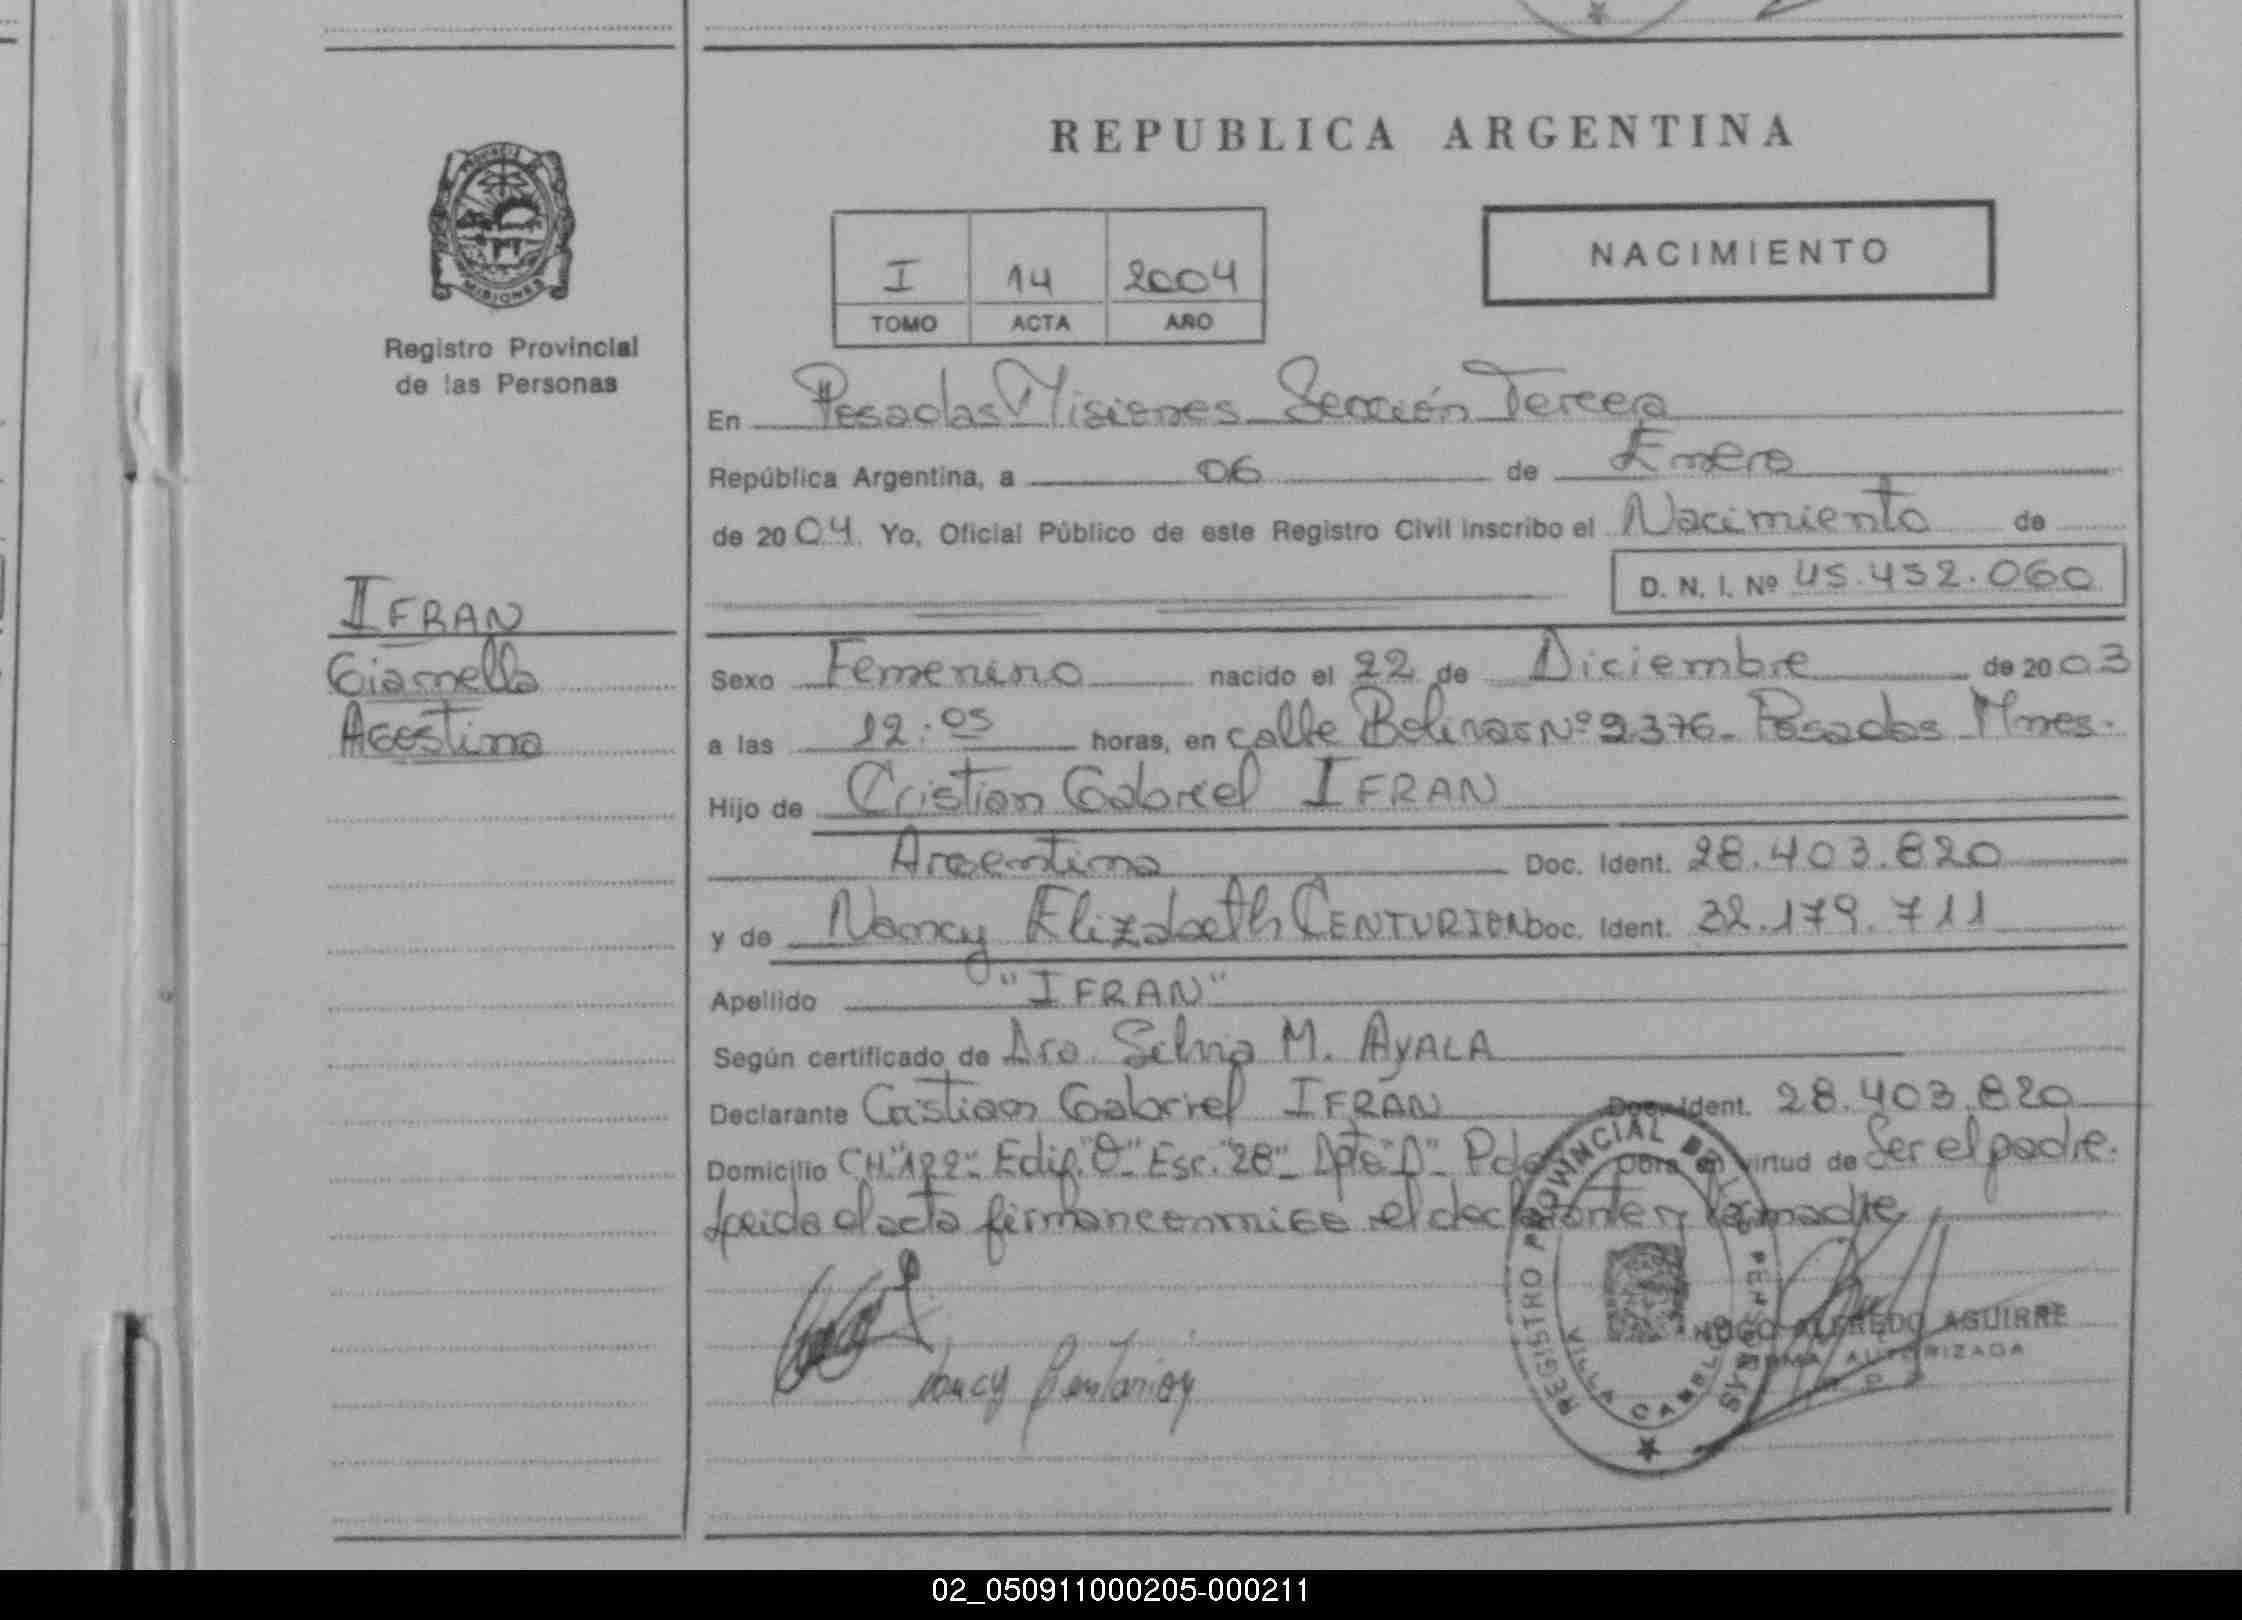 REPUBLICA ARGENTINA
NACIMIENTO
I 14 2004
TOMO ACTA AÑO
PROVINCIA
MISIONES
Registro Provincial
de las Personas
En Posadas Misiones Sección Tercera
República Argentina, a 06 de Enero
de 2004. Yo, Oficial Público de este Registro Civil inscribo el Nacimiento de
D. N. I. Nº 45.432.060
IFRAN
Gianella
Agostina
Sexo Femenino nacido el 22 de Diciembre de 2003
a las 12:05 horas, en calle Bolivar Nº 2376 - Posadas Mnes.
Hijo de Cristian Gabriel IFRAN
Argentino Doc. Ident. 28.403.820
y de Nancy Elizabeth CENTURION Doc. Ident. 32.179.711
Apellido "IFRAN"
Según certificado de Dra. Silvia M. AYALA
Declarante Cristian Gabriel IFRAN Doc. Ident. 28.403.820
Domicilio CH "122" Edif. "O" Esc. "28" Dpto "D" Pdas Obra en virtud de Ser el padre.
Leida el acta firman conmigo el declarante y la madre
Nancy Centurion
REGISTRO PROVINCIAL DE LAS PERSONAS
VILLA CABELLO
HUGO ALFREDO AGUIRRE
FIRMA AUTORIZADA
02_050911000205-000211